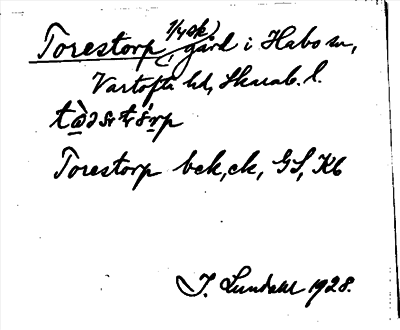 Torestorp, 1/4 (sk) gård i Habo sn,
Vartofta hd, Skarab. l.
Torestorp bck, ck, GS, Kb
I. Lundahl 1928.